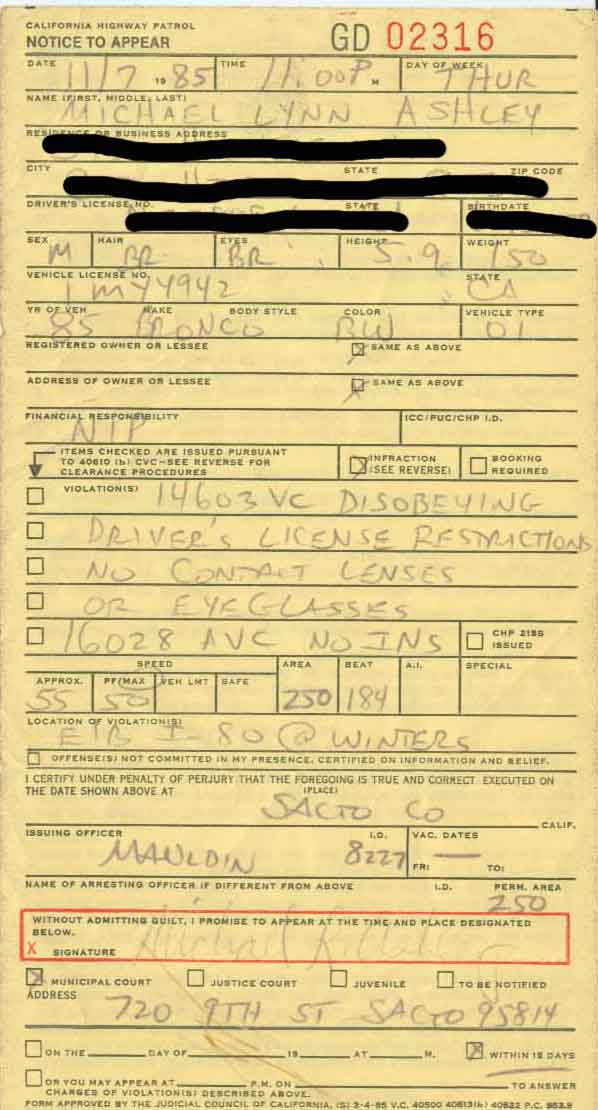 CALIFORNIA HIGHWAY PATROL
NOTICE TO APPEAR GD 02316
DATE 11/7 1985 TIME 11:00P M DAY OF WEEK THUR
NAME (FIRST, MIDDLE, LAST)
MICHAEL LYNN ASHLEY
RESIDENCE OR BUSINESS ADDRESS
CITY STATE ZIP CODE
DRIVER'S LICENSE NO. STATE BIRTHDATE
SEX HAIR EYES HEIGHT WEIGHT
M BR BR 5.9 150
VEHICLE LICENSE NO. STATE
1MYY942 CA
YR OF VEH MAKE BODY STYLE COLOR VEHICLE TYPE
85 BRONCO 01
REGISTERED OWNER OR LESSEE SAME AS ABOVE
ADDRESS OF OWNER OR LESSEE SAME AS ABOVE
FINANCIAL RESPONSIBILITY ICC/PUC/CHP I.D.
NIP
ITEMS CHECKED ARE ISSUED PURSUANT
TO 40610 (b) CVC—SEE REVERSE FOR
CLEARANCE PROCEDURES
INFRACTION
(SEE REVERSE)
BOOKING
REQUIRED
VIOLATION(S) 14603 VC DISOBEYING
DRIVER'S LICENSE RESTRICTIONS
NO CONTACT LENSES
OR EYEGLASSES
16028 AVC NO INS CHP 215S
ISSUED
SPEED AREA BEAT A.I. SPECIAL
APPROX. PF/MAX VEH LMT SAFE
55 50 250 184
LOCATION OF VIOLATION(S)
E/B I-80 @ WINTERS
OFFENSE(S) NOT COMMITTED IN MY PRESENCE, CERTIFIED ON INFORMATION AND BELIEF.
I CERTIFY UNDER PENALTY OF PERJURY THAT THE FOREGOING IS TRUE AND CORRECT EXECUTED ON
THE DATE SHOWN ABOVE AT (PLACE)
SACTO CO CALIF.
ISSUING OFFICER I.D. VAC. DATES
MAULDIN 8227 FR: — TO:
NAME OF ARRESTING OFFICER IF DIFFERENT FROM ABOVE I.D. PERM. AREA
250
WITHOUT ADMITTING GUILT, I PROMISE TO APPEAR AT THE TIME AND PLACE DESIGNATED
BELOW.
X SIGNATURE Michael
MUNICIPAL COURT JUSTICE COURT JUVENILE TO BE NOTIFIED
ADDRESS
720 9TH ST SACTO 95814
ON THE DAY OF 19 AT M. WITHIN 15 DAYS
OR YOU MAY APPEAR AT P.M. ON TO ANSWER
CHARGES OF VIOLATION(S) DESCRIBED ABOVE.
FORM APPROVED BY THE JUDICIAL COUNCIL OF CALIFORNIA, (S) 2-4-85 V.C. 40500 40513(b) 40522 P.C. 853.9